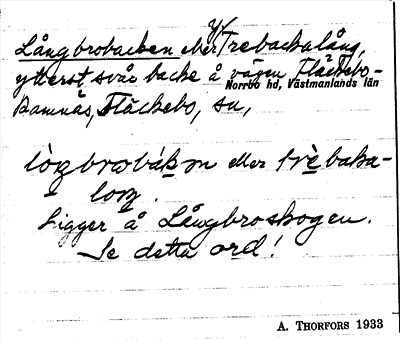 Långbrobacken eller Trebackalång,
ytterst svår backe å vägen Fläckebo-
Norrbo hd, Västmanlands län
Ramnäs, Fläckebo, sn,
eller trèbaka-
loŋ.
Ligger å Långbroskogen.
Se detta ord!
A. THORFORS 1933